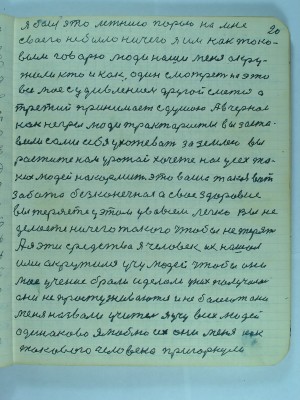 20
я был это летнею порою на мне
своего не было ничего я им как тако-
вым говорю люди наши меня окру-
жили кто и как, один смотрит на это
все мое с удивлением другой смеется а
третий принимает с душою А вчера
как негры люди трактористы вы заста-
вили сами себя ухаживать за землею вы
растите нам урожай хочете нас всех та-
ких людей накормить это ваша такая вот
забота бесконечная а свое здоровие
вы теряете у этом у во всем легко Вы не
делаете ничего такого чтобы не терять
А я эти средства я человек их нашол
ими окружился учу людей чтобы они
мое учение брали и делали у них получается
они не простуживаются и не болеют они
меня назвали учителем я учу всех людей
одинаково я люблю их они меня как
такового человека пригорнули